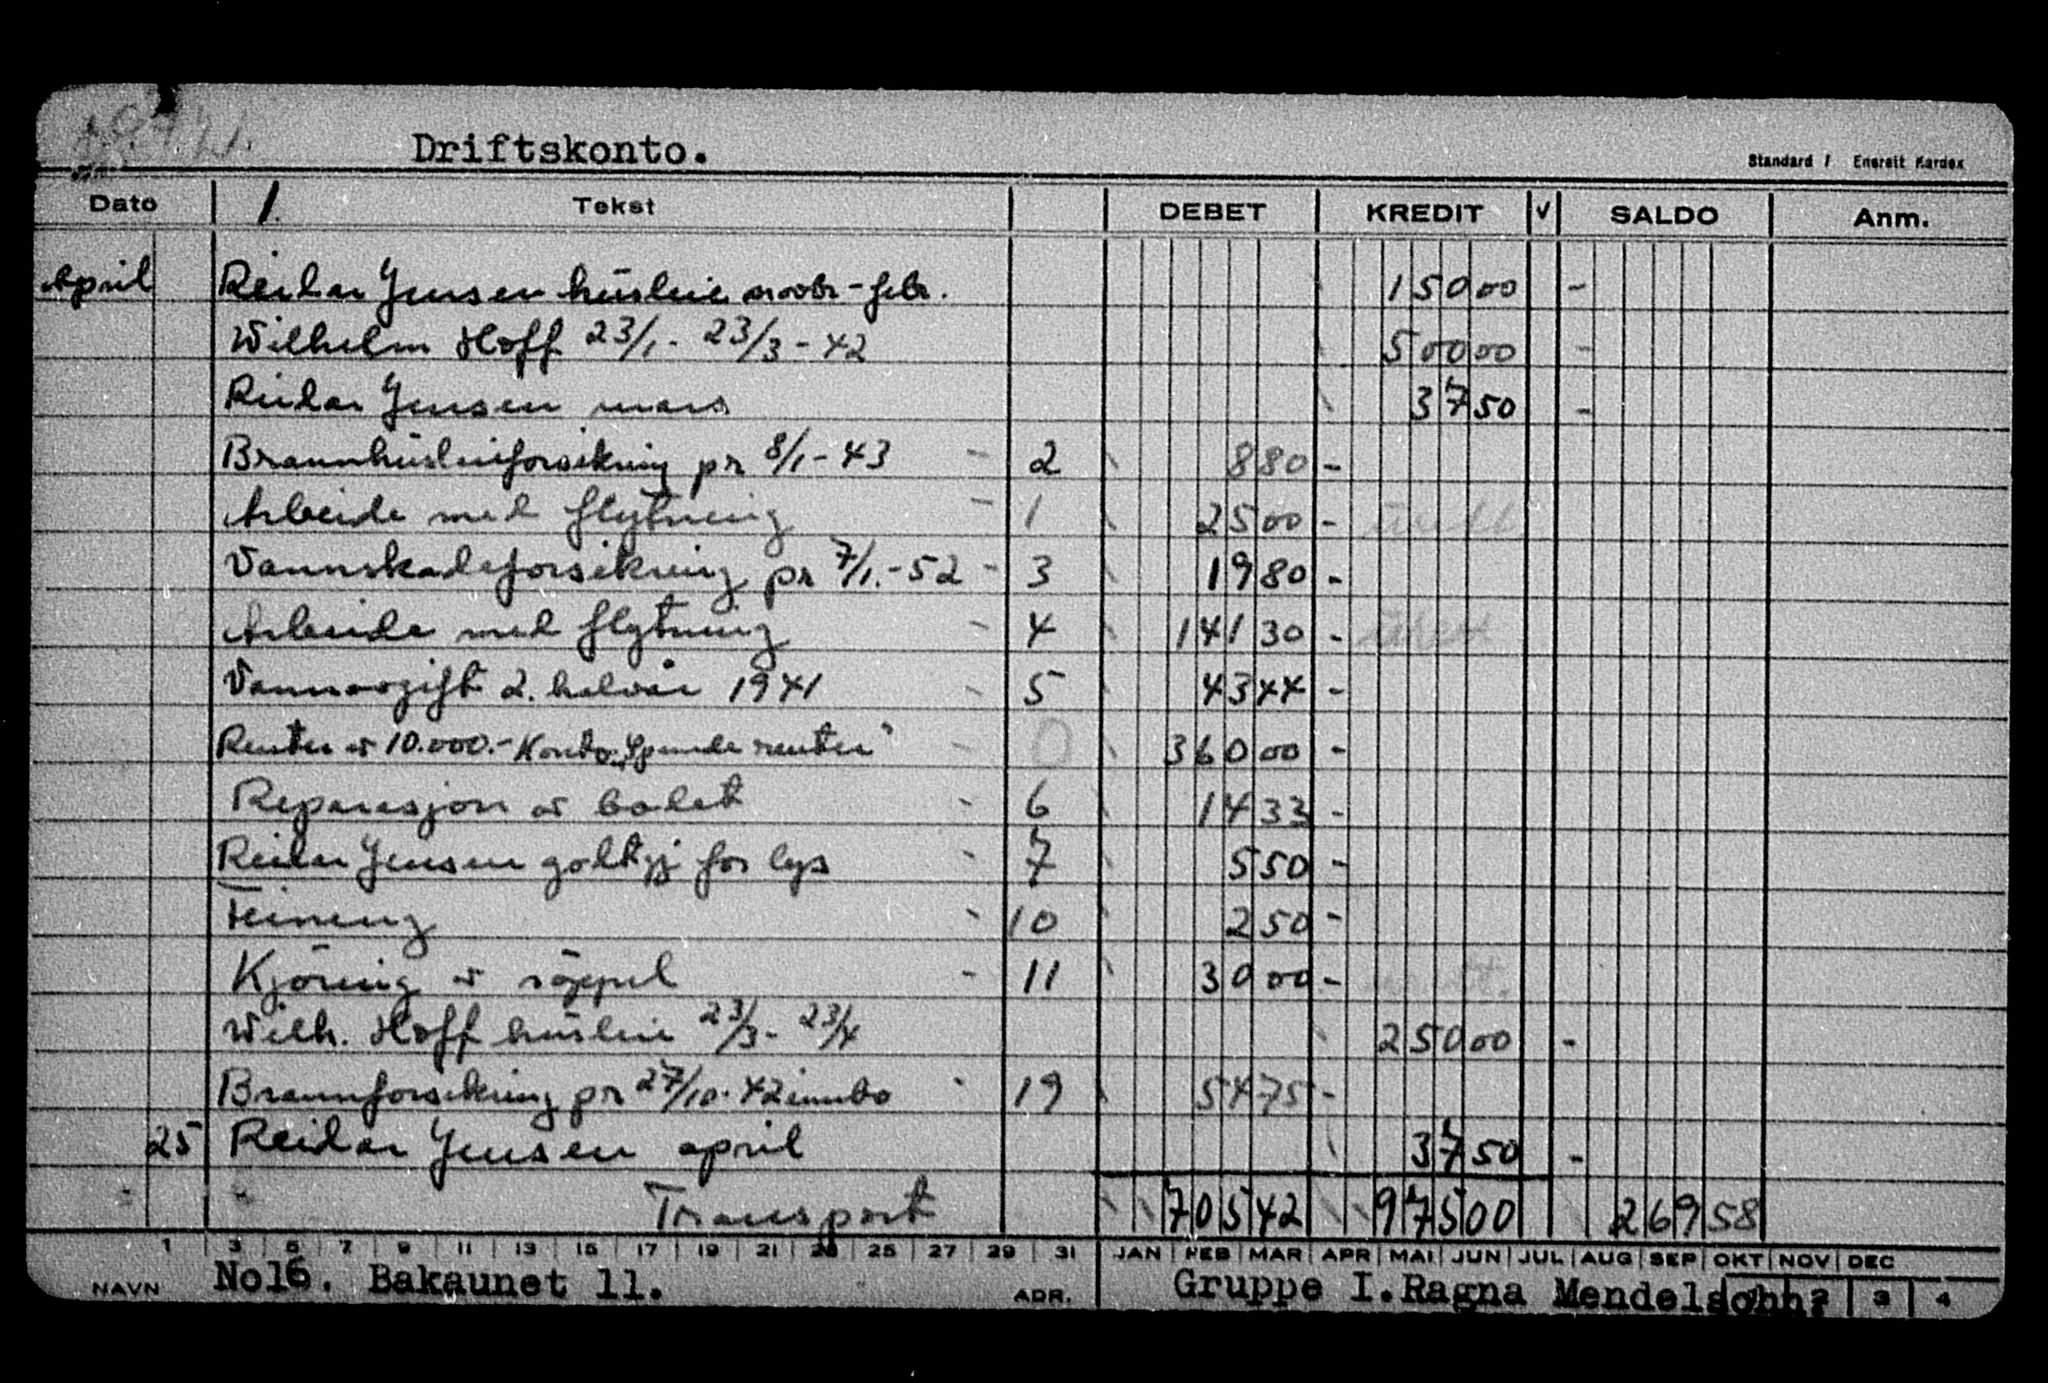 Driftskonto.
Standard I Enerett Kardex
Dato 1. Tekst DEBET KREDIT V SALDO Anm.
April Reidar Jensen húsleie novbr - febr. 150 00 -
Wilhelm Hoff 23/1 - 23/3 - 42 500 00 -
Reidar Jensen mars 37 50 -
Brannhúsleieforsikring pr 8/1 - 43 - 2 8 80 -
Arbeide med flytning - 1 25 00 -
Vannskadeforsikring pr 7/1. - 52 - 3 19 80 -
Arbeide med flytning - 4 141 30 -
Vannavgift 2. halvår 1941 - 5 43 44 -
Renter av 10.000.- Konto "Spinde renter" - 0 360 00 -
Reparasjon av badet - 6 14 33 -
Reidar Jensen godtgj for lys - 7 5 50 -
Feiing - 10 2 50 -
Kjöring av söppel - 11 30 00 -
Wilh. Hoff húsleie 23/3 - 23/4 250 00 -
Brannforsikring pr 27/10 - 42 innbo - 19 54 75 -
25 Reidar Jensen april 37 50 -
Transport 705 42 975 00 269 58
1 3 5 7 9 11 13 15 17 19 21 23 25 27 29 31 JAN FEB MAR APR MAI JUN JUL AUG SEP OKT NOV DEC
NAVN No16. Bakaunet 11. ADR. Gruppe I. Ragna Mendelsohn. 2 3 4